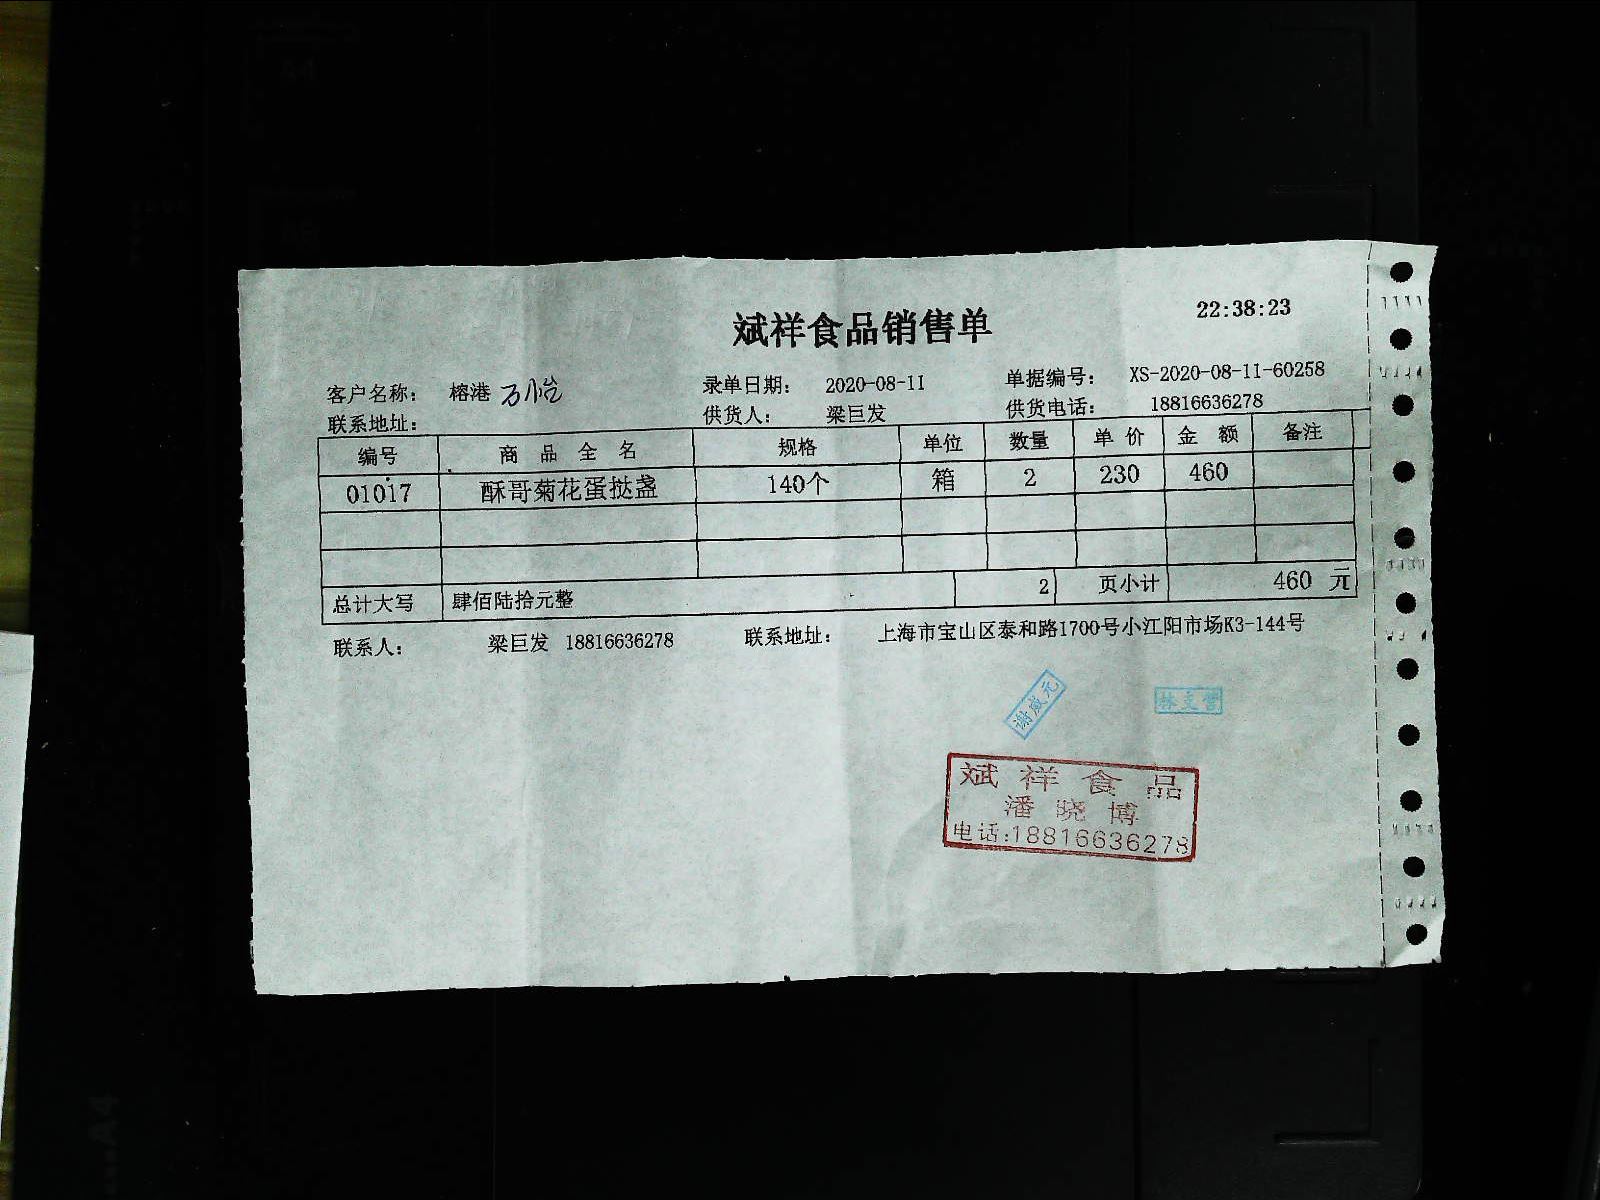 22:38:23
斌祥食品销售单
客户名称： 榕港 万小怡 录单日期： 2020-08-11 单据编号： XS-2020-08-11-60258
联系地址： 供货人： 梁巨发 供货电话： 18816636278
编号 商品全名 规格 单位 数量 单价 金额 备注
01017 酥哥菊花蛋挞盏 140个 箱 2 230 460
总计大写 肆佰陆拾元整 2 页小计 460 元
联系人： 梁巨发 18816636278 联系地址： 上海市宝山区泰和路1700号小江阳市场K3-144号
谢成元
林文营
斌祥食品
潘晓博
电话:18816636278
A4